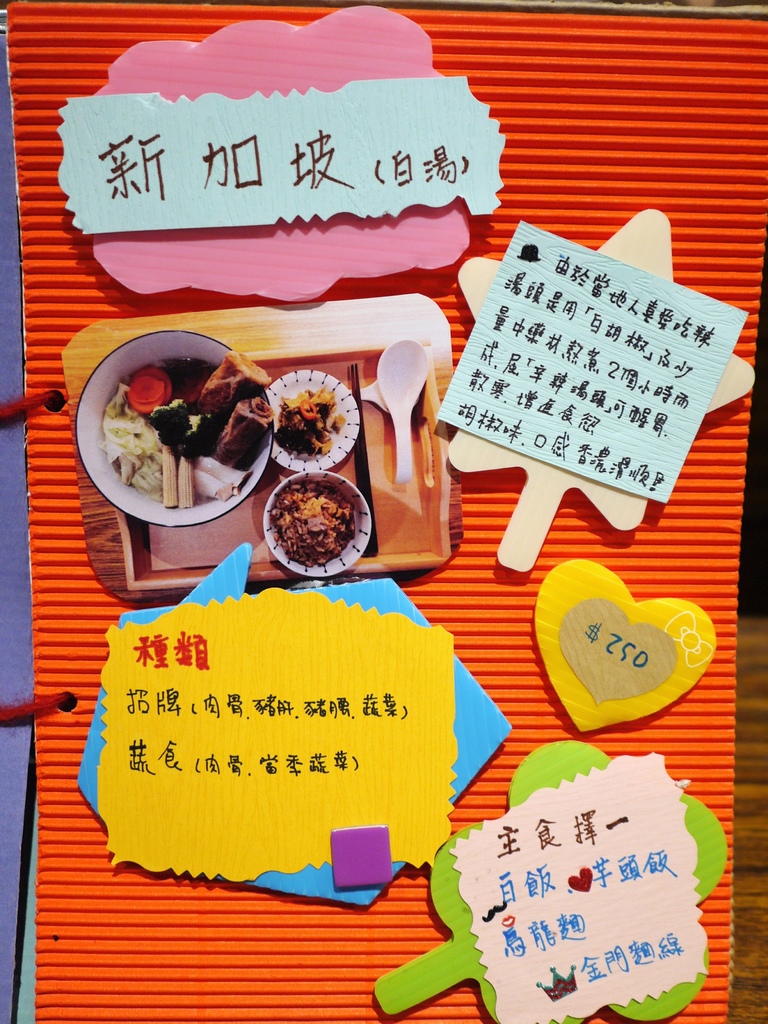 新加坡(白湯)
由於當地人喜愛吃辣
湯頭是用「白胡椒」及少
量中藥材熬煮2個小時而
成,屬「辛辣湯頭」可醒胃.
散寒.增進食慾
胡椒味.口感香濃滑順!!
$250
種類
招牌(肉骨.豬肝.豬腰.蔬菜)
蔬食(肉骨.當季蔬菜)
主食擇一
白飯、芋頭飯
烏龍麵
金門麵線